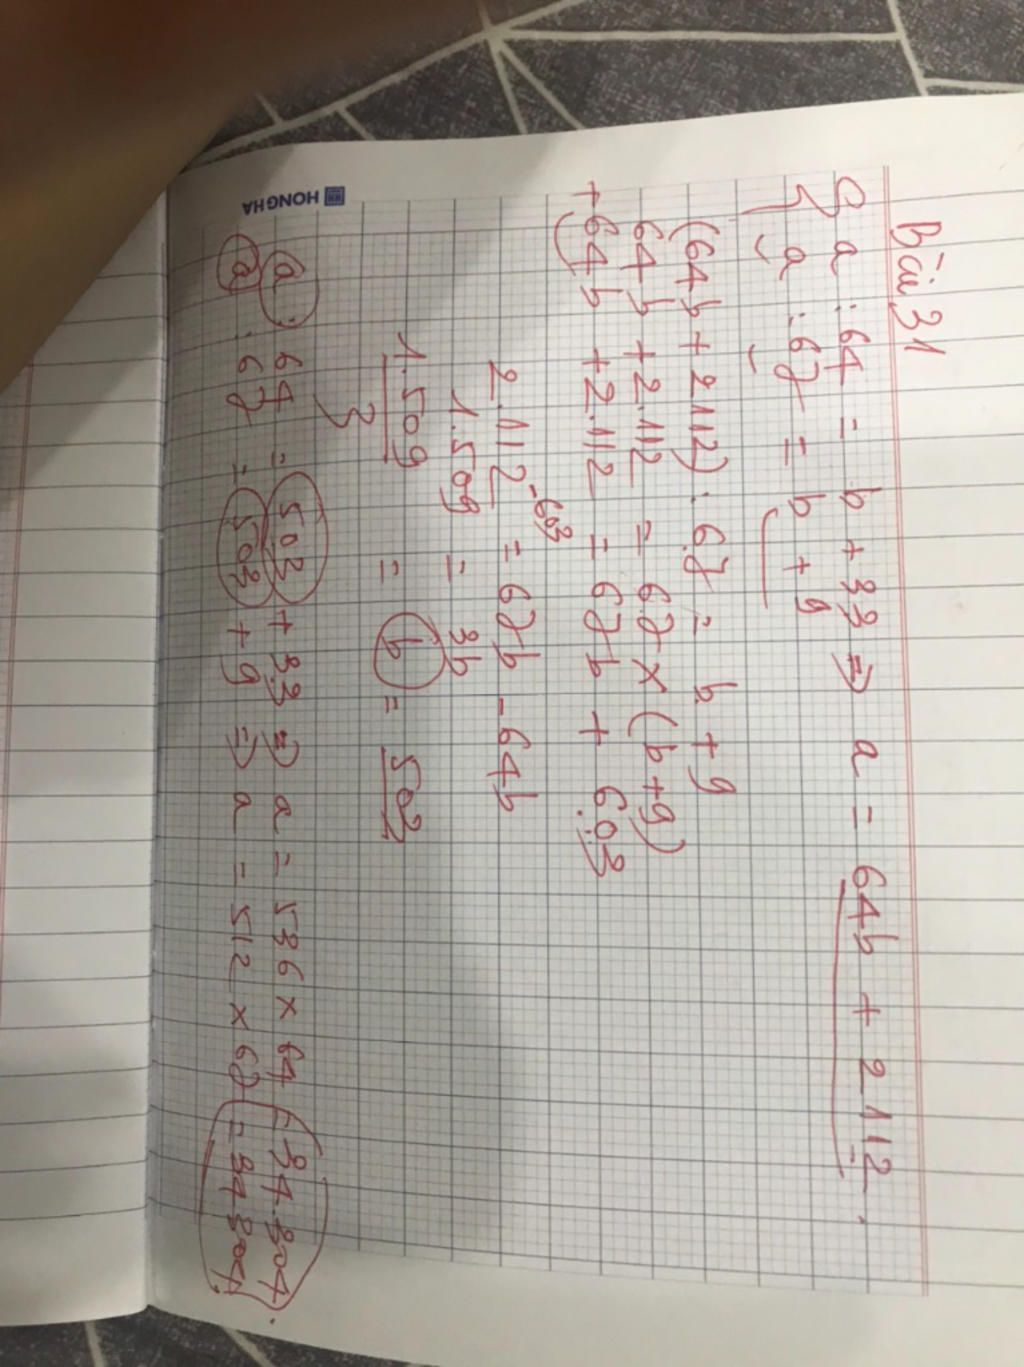 Bài 31
a : 64 = b + 33 => a = 64b + 2112.
a : 67 = b + 9
(64b + 2112) : 67 = b + 9
64b + 2.112 = 67 x (b+9)
+ 64b + 2.112 = 67b + 603
2.112 - 603 = 67b - 64b
1.509 = 3b
1.509 = b = 503
3
a : 64 = 503 + 33 => a = 536 x 64 = 34.304.
a : 67 = 503 + 9 => a = 512 x 67 = 34.304.
HONG HA